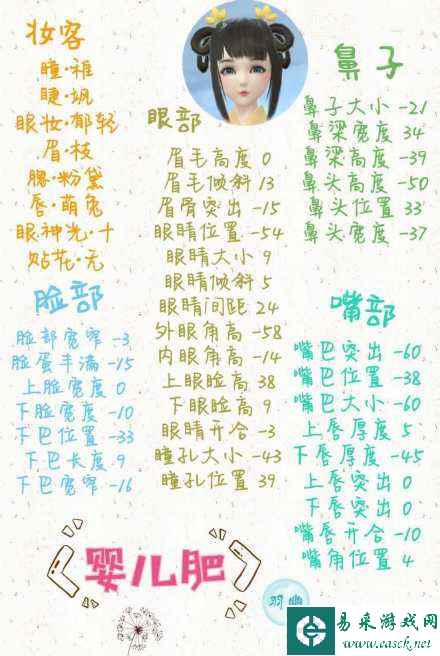 妆客
瞳·稚
睫·飒
眼妆·郁轻
眉·枝
腮·粉黛
唇·萌兔
眼神光·十
贴花·无
脸部
脸部宽窄 -3
脸蛋丰满 -15
上脸宽度 0
下脸宽度 -10
下巴位置 -33
下巴长度 9
下巴宽窄 -16
眼部
眉毛高度 0
眉毛倾斜 13
眉骨突出 -15
眼睛位置 -54
眼睛大小 9
眼睛倾斜 5
眼睛间距 24
外眼角高 -58
内眼角高 -14
上眼睑高 38
下眼睑高 9
眼睛开合 -3
瞳孔大小 -43
瞳孔位置 39
鼻子
鼻子大小 -21
鼻梁宽度 34
鼻梁高度 -39
鼻头高度 -50
鼻头位置 33
鼻头宽度 -37
嘴部
嘴巴突出 -60
嘴巴位置 -38
嘴巴大小 -60
上唇厚度 5
下唇厚度 -45
上唇突出 0
下唇突出 0
嘴唇开合 -10
嘴角位置 4
婴儿肥
易采游戏网
www.easck.net